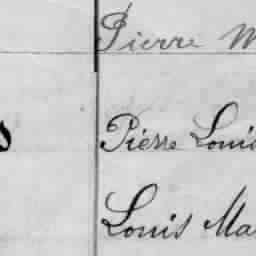 Pierre
Pierre Louis
Louis